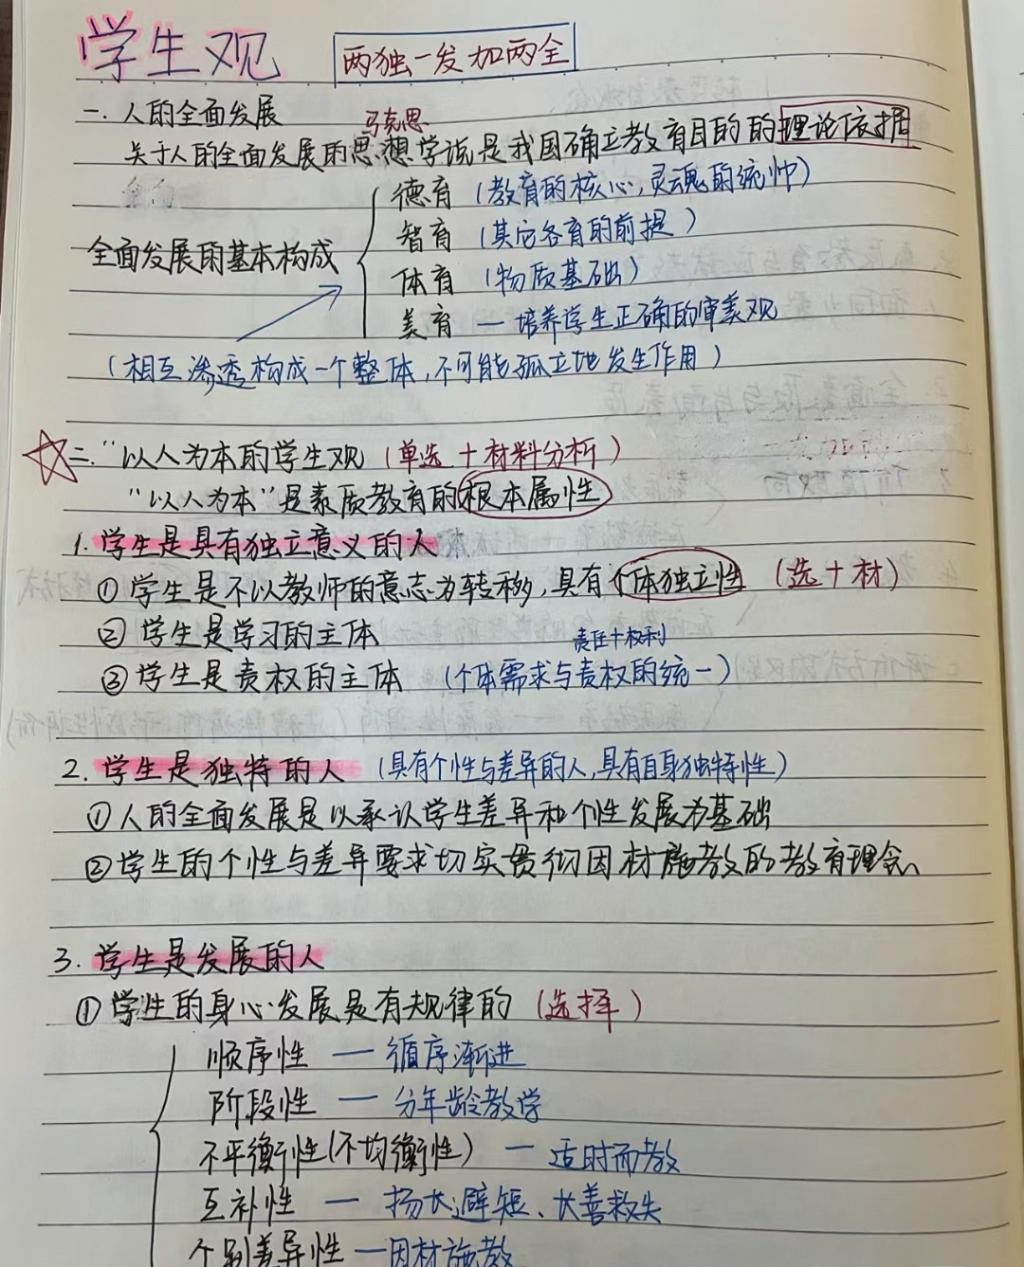 学生观 两独一发加两全
一.人的全面发展
马克思
关于人的全面发展的思想学说是我国确立教育目的的理论依据
全面发展的基本构成
德育（教育的核心,灵魂的统帅）
智育（其它各育的前提）
体育（物质基础）
美育 — 培养学生正确的审美观
（相互渗透构成一个整体,不可能孤立地发生作用）
二."以人为本的学生观（单选+材料分析）
"以人为本"是素质教育的根本属性
1.学生是具有独立意义的人
①学生是不以教师的意志为转移,具有个体独立性（选+材）
②学生是学习的主体
责任+权利
③学生是责权的主体（个体需求与责权的统一）
2.学生是独特的人（具有个性与差异的人,具有自身独特性）
①人的全面发展是以承认学生差异和个性发展为基础
②学生的个性与差异要求切实贯彻因材施教的教育理念、
3.学生是发展的人
①学生的身心发展是有规律的（选择）
顺序性 — 循序渐进
阶段性 — 分年龄教学
不平衡性(不均衡性) — 适时而教
互补性 — 扬长避短、长善救失
个别差异性 — 因材施教